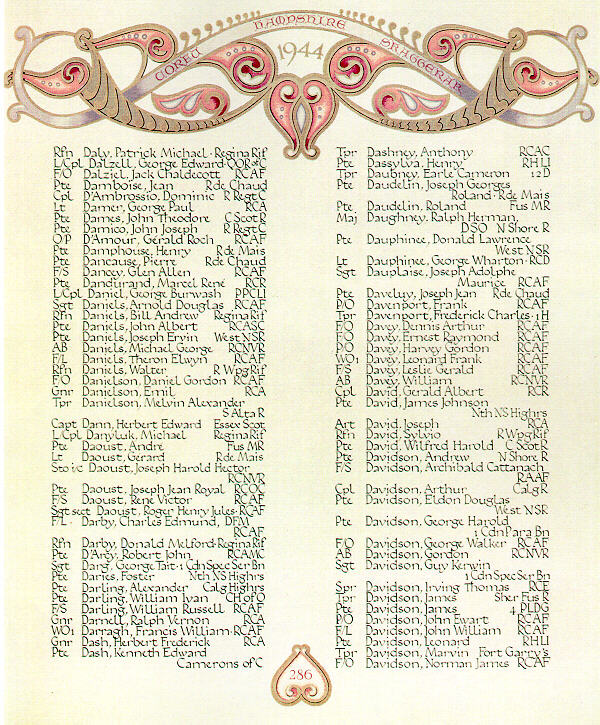 CORFU HAMPSHIRE SKAGGERAK
1944
Rfn Daly, Patrick Michael · Regina Rif
L/Cpl Dalzell, George Edward · QOR of C
F/O Dalziel, Jack Chaldecott RCAF
Pte Damboise, Jean R de Chaud
Cpl D'Ambrossio, Dominic R Regt C
Lt Damer, George Paul RCA
Pte Dames, John Theodore C Scot R
Pte Damico, John Joseph R Regt C
O/P D'Amour, Gérald Roch RCAF
Pte Damphouse, Henry R de Mais
Pte Dancause, Pierre R de Chaud
F/S Dancey, Glen Allen RCAF
Pte Dandurand, Marcel René RCR
L/Cpl Daniel, George Burwash PPCLI
Sgt Daniels, Arnold Douglas RCAF
Rfn Daniels, Bill Andrew Regina Rif
Pte Daniels, John Albert RCASC
Pte Daniels, Joseph Ervin West NSR
AB Daniels, Michael George RCNVR
F/L Daniels, Theron Elwyn RCAF
Rfn Daniels, Walter R Wpg Rif
F/O Danielson, Daniel Gordon RCAF
Gnr Danielson, Emil RCA
Tpr Danielson, Melvin Alexander
S Alta R
Capt Dann, Herbert Edward Essex Scot
L/Cpl Danyluk, Michael Regina Rif
Pte Daoust, André Fus MR
Lt Daoust, Gérard R de Mais
Sto 1/c Daoust, Joseph Harold Hector
RCNVR
Pte Daoust, Joseph Jean Royal RCOC
F/S Daoust, René Victor RCAF
Sgt sect Daoust, Roger Henry Jules · RCAF
F/L · Darby, Charles Edmund, DFM
RCAF
Rfn Darby, Donald Melford · Regina Rif
Pte D'Arcy, Robert John RCAMC
Sgt Darg, George Tait · 1 Cdn Spec Ser Bn
Pte Daries, Foster Nth NS Highrs
Pte Darling, Alexander Calg Highrs
Pte Darling, William Ivan CH of O
F/S Darling, William Russell RCAF
Gnr Darnell, Ralph Vernon RCA
WO1 Darragh, Francis William · RCAF
Gnr Dash, Herbert Frederick RCA
Pte Dash, Kenneth Edward
Camerons of C
Tpr Dashney, Anthony RCAC
Pte Dassylva, Henry RHLI
Tpr Daubney, Earle Cameron 12 D
Pte Daudelin, Joseph Georges
Roland · R de Mais
Pte Daudelin, Roland Fus MR
Maj Daughney, Ralph Herman,
DSO N Shore R
Pte Dauphinee, Donald Lawrence
West NSR
Lt Dauphinee, George Wharton · RCD
Sgt Dauplaise, Joseph Adolphe
Maurice RCAF
Pte Daveluy, Joseph Jean R de Chaud
P/O Davenport, Frank RCAF
Tpr Davenport, Frederick Charles · 1 H
F/O Davey, Dennis Arthur RCAF
F/O Davey, Ernest Raymond RCAF
P/O Davey, Harvey Gordon RCAF
WO1 Davey, Leonard Frank RCAF
F/S Davey, Leslie Gerald RCAF
AB Davey, William RCNVR
Cpl David, Gerald Albert RCR
Pte David, James Johnson
Nth NS Highrs
Art David, Joseph RCA
Rfn David, Sylvio R Wpg Rif
Pte David, Wilfred Harold C Scot R
Pte Davidson, Andrew N Shore R
F/S Davidson, Archibald Cattanach
RAAF
Cpl Davidson, Arthur Calg R
Pte Davidson, Eldon Douglas
West NSR
Pte Davidson, George Harold
1 Cdn Para Bn
F/O Davidson, George Walker RCAF
AB Davidson, Gordon RCNVR
Sgt Davidson, Guy Kerwin
1 Cdn Spec Ser Bn
Spr Davidson, Irving Thomas RCE
Tpr Davidson, James Sher Fus R
Pte Davidson, James 4 PLDG
P/O Davidson, John Ewart RCAF
F/L Davidson, John William RCAF
Pte Davidson, Leonard RHLI
Tpr Davidson, Marvin Fort Garry's
F/O Davidson, Norman James RCAF
286